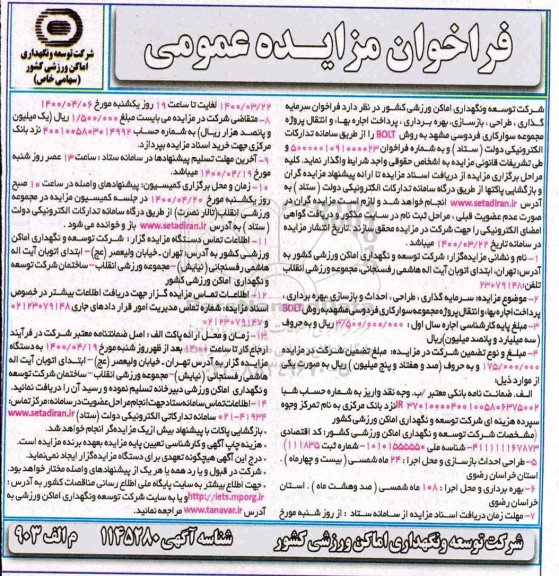 فراخوان مزایده عمومی
شرکت توسعه ونگهداری
اماکن ورزشی کشور
(سهامی خاص)
شرکت توسعه و نگهداری اماکن ورزشی کشور در نظر دارد فراخوان سرمایه
گذاری ، طراحی ، بازسازی، بهره برداری ، پرداخت اجاره بهاء و انتقال پروژه
مجموعه سوارکاری فردوسی مشهد به روش BOLT را از طریق سامانه تدارکات
الکترونیکی دولت ( ستاد ) و به شماره فراخوان ۵۰۰۰۰۰۱۰۹۱۰۰۰۰۲۳ و
طی تشریفات قانونی مزایده به اشخاص حقوقی واجد شرایط واگذار نماید. کلیه
مراحل برگزاری مزایده از دریافت اسناد مزایده تا ارائه پیشنهاد مزایده گران
و بازگشایی پاکتها از طریق درگاه سامانه تدارکات الکترونیکی دولت ( ستاد ) به
آدرس www.setadiran.ir انجام خواهد شد و لازم است مزایده گران در
صورت عدم عضویت قبلی ، مراحل ثبت نام در سایت مذکور و دریافت گواهی
امضای الکترونیکی را جهت شرکت در مزایده محقق سازند. تاریخ انتشار مزایده
در سامانه تاریخ ۱۴۰۰/۰۳/۲۲ میباشد.
۱- نام و نشانی مزایده گزار: شرکت توسعه و نگهداری اماکن ورزشی کشور به
آدرس: تهران، ابتدای اتوبان آیت اله هاشمی رفسنجانی، مجموعه ورزشی انقلاب
تلفن: ۲۳۰۷۹۱۴۸
۲- موضوع مزایده: سرمایه گذاری ، طراحی ، احداث و بازسازی بهره برداری ،
پرداخت اجاره بهاء و انتقال پروژه مجموعه سوارکاری فردوسی مشهد به روش BOLT
۳- مبلغ پایه کارشناسی اجاره سال اول : ۳/۵۰۰/۰۰۰/۰۰۰ ریال و به حروف
سه میلیارد و پانصد میلیون) ریال
۴- مبلغ و نوع تضمین شرکت در مزایده: مبلغ تضمین شرکت در مزایده
۱۷۵/۰۰۰/۰۰۰ و به حروف (صد و هفتاد و پنج میلیون ) ریال به صورت یکی
از موارد ذیل:
الف. ضمانت نامه بانکی معتبر /ب. وجه نقد واریز به شماره حساب شبا
نزد بانک مرکزی به نام تمرکز وجوه
سپرده هزینه ای شرکت توسعه و نگهداری اماکن ورزشی کشور
(مشخصات شرکت توسعه و نگهداری اماکن ورزشی کشور: کد اقتصادی
۴۱۱۱۱۱۱۶۷۸۷۳- شناسه ملی ۱۰۱۰۱۵۵۵۵۵۰- شماره ثبت ۱۱۱۸۳۵)
۵- طراحی احداث بازسازی و محل اجرا : ۲۴ ماه شمسی ( بیست و چهارماه ) .
استان خراسان رضوی
۶- بهره برداری و محل اجرا : ۱۰۸ ماه شمسی ( صد وهشت ماه ) . استان
خراسان رضوی
۷- مهلت زمان دریافت اسناد مزایده از سامانه ستاد : از روز شنبه مورخ
۱۴۰۰/۰۳/۲۲ لغایت تا ساعت ۱۹ روز یکشنبه مورخ ۱۴۰۰/۰۴/۰۶
۸- متقاضی شرکت در مزایده می بایست مبلغ ۱/۵۰۰/۰۰۰ ریال (یک میلیون
و پانصد هزار ریال) به شماره حساب ۴۰۰۱۰۰۵۸۰۳۰۱۴۹۹۲ نزد بانک
مرکزی جهت خرید اسناد مزایده بپردازد.
۹- آخرین مهلت تسلیم پیشنهادها در سامانه ستاد : ساعت ۱۳ عصر روز شنبه
مورخ ۱۴۰۰/۰۴/۱۹ میباشد.
۱۰- زمان و محل برگزاری کمیسیون: پیشنهادهای واصله در ساعت ۱۰ صبح
روز یکشنبه مورخ ۱۴۰۰/۰۴/۲۰ در جلسه کمیسیون مزایده در مجموعه
ورزشی انقلاب (تالار نصرت) از طریق درگاه سامانه تدارکات الکترونیکی دولت
( ستاد ) به آدرس www.setadiran.ir باز و خوانده می شود .
۱۱- اطلاعات تماس دستگاه مزایده گزار : شرکت توسعه و نگهداری اماکن
ورزشی کشور به آدرس: تهران ، خیابان ولیعصر (عج) - ابتدای اتوبان آیت اله
هاشمی رفسنجانی (نیایش) - مجموعه ورزشی انقلاب - ساختمان شرکت توسعه
و نگهداری اماکن ورزشی کشور
۱۲- اطلاعات تماس مزایده گزار جهت دریافت اطلاعات بیشتر در خصوص
اسناد مزایده: شماره تماس مدیریت امور قرار دادهای جاری ۰۲۱۲۳۰۷۹۱۴۸
و ۰۲۱۲۳۰۷۹۱۴۷
۱۳- زمان و محل ارائه پاکت الف : اصل ضمانتنامه معتبر شرکت در فرآیند
ارجاع کار تا ساعت ۱۳۰۰ بعد از ظهر روز شنبه مورخ ۱۴۰۰/۰۴/۱۹ به دستگاه
مزایده گزار به آدرس تهران ، خیابان ولیعصر (عج) - ابتدای اتوبان آیت اله
هاشمی رفسنجانی (نیایش)- مجموعه ورزشی انقلاب - ساختمان شرکت توسعه
و نگهداری اماکن ورزشی دبیرخانه تسلیم نموده و رسید آن را دریافت نمایید.
۱۴- اطلاعات تماس سامانه ستاد جهت انجام مراحل عضویت در سامانه: مرکز تماس:
۰۲۱-۴۱۹۳۴ سامانه تدارکاتی الکترونیکی دولت (ستاد) www.setadiran.ir
- بازگشایی پاکات با پیشنهاد بیش از یک مزایده گر انجام خواهد شد.
- هزینه چاپ آگهی و کارشناسی تعیین پایه مزایده بعهده برنده مزایده است.
- درج این آگهی هیچگونه تعهدی برای دستگاه مزایده گزار ایجاد نمی نماید.
- شرکت در قبول و یا رد همه یا هر یک از پیشنهادهای واصله مختار خواهد بود.
- جهت اطلاع بیشتر به سایت پایگاه ملی اطلاع رسانی مناقصات کشور به آدرس :
http://iets.mporg.ir و یا به سایت شرکت توسعه و نگهداری اماکن ورزشی به
آدرس www.tanavar.ir مراجعه نمائید.
شرکت توسعه و نگهداری اماکن ورزشی کشور
شناسه آگهی ۱۱۴۵۲۸۰ م الف ۹۰۳